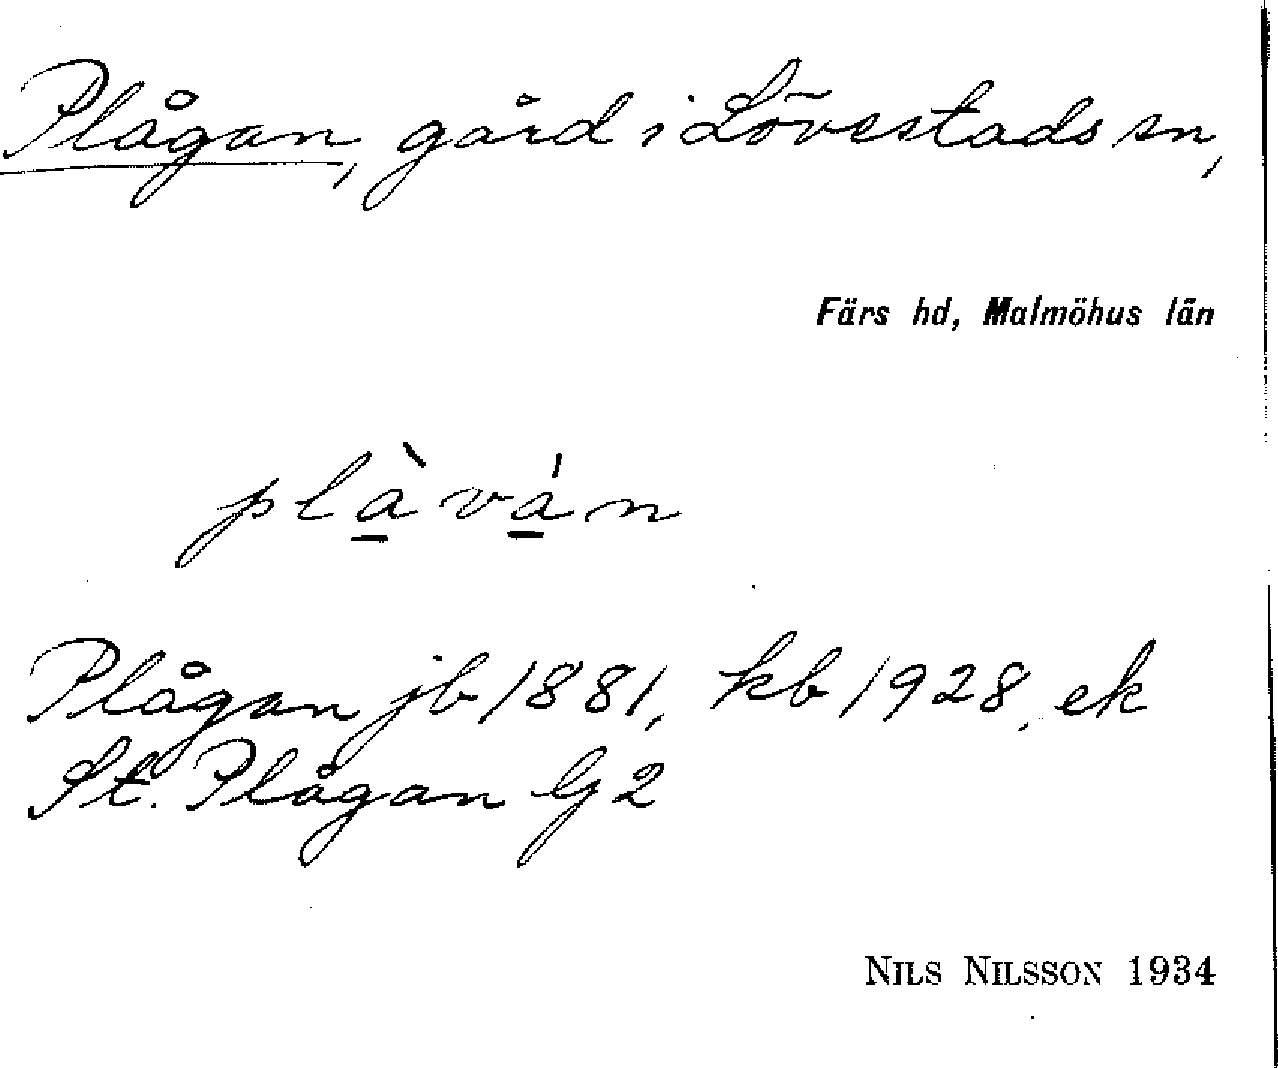 Plågan, gård i Lövestads sn,
Färs hd, Malmöhus län
plàván
Plågan jb 1881, kb 1928, ek
St. Plågan G2
NILS NILSSON 1934